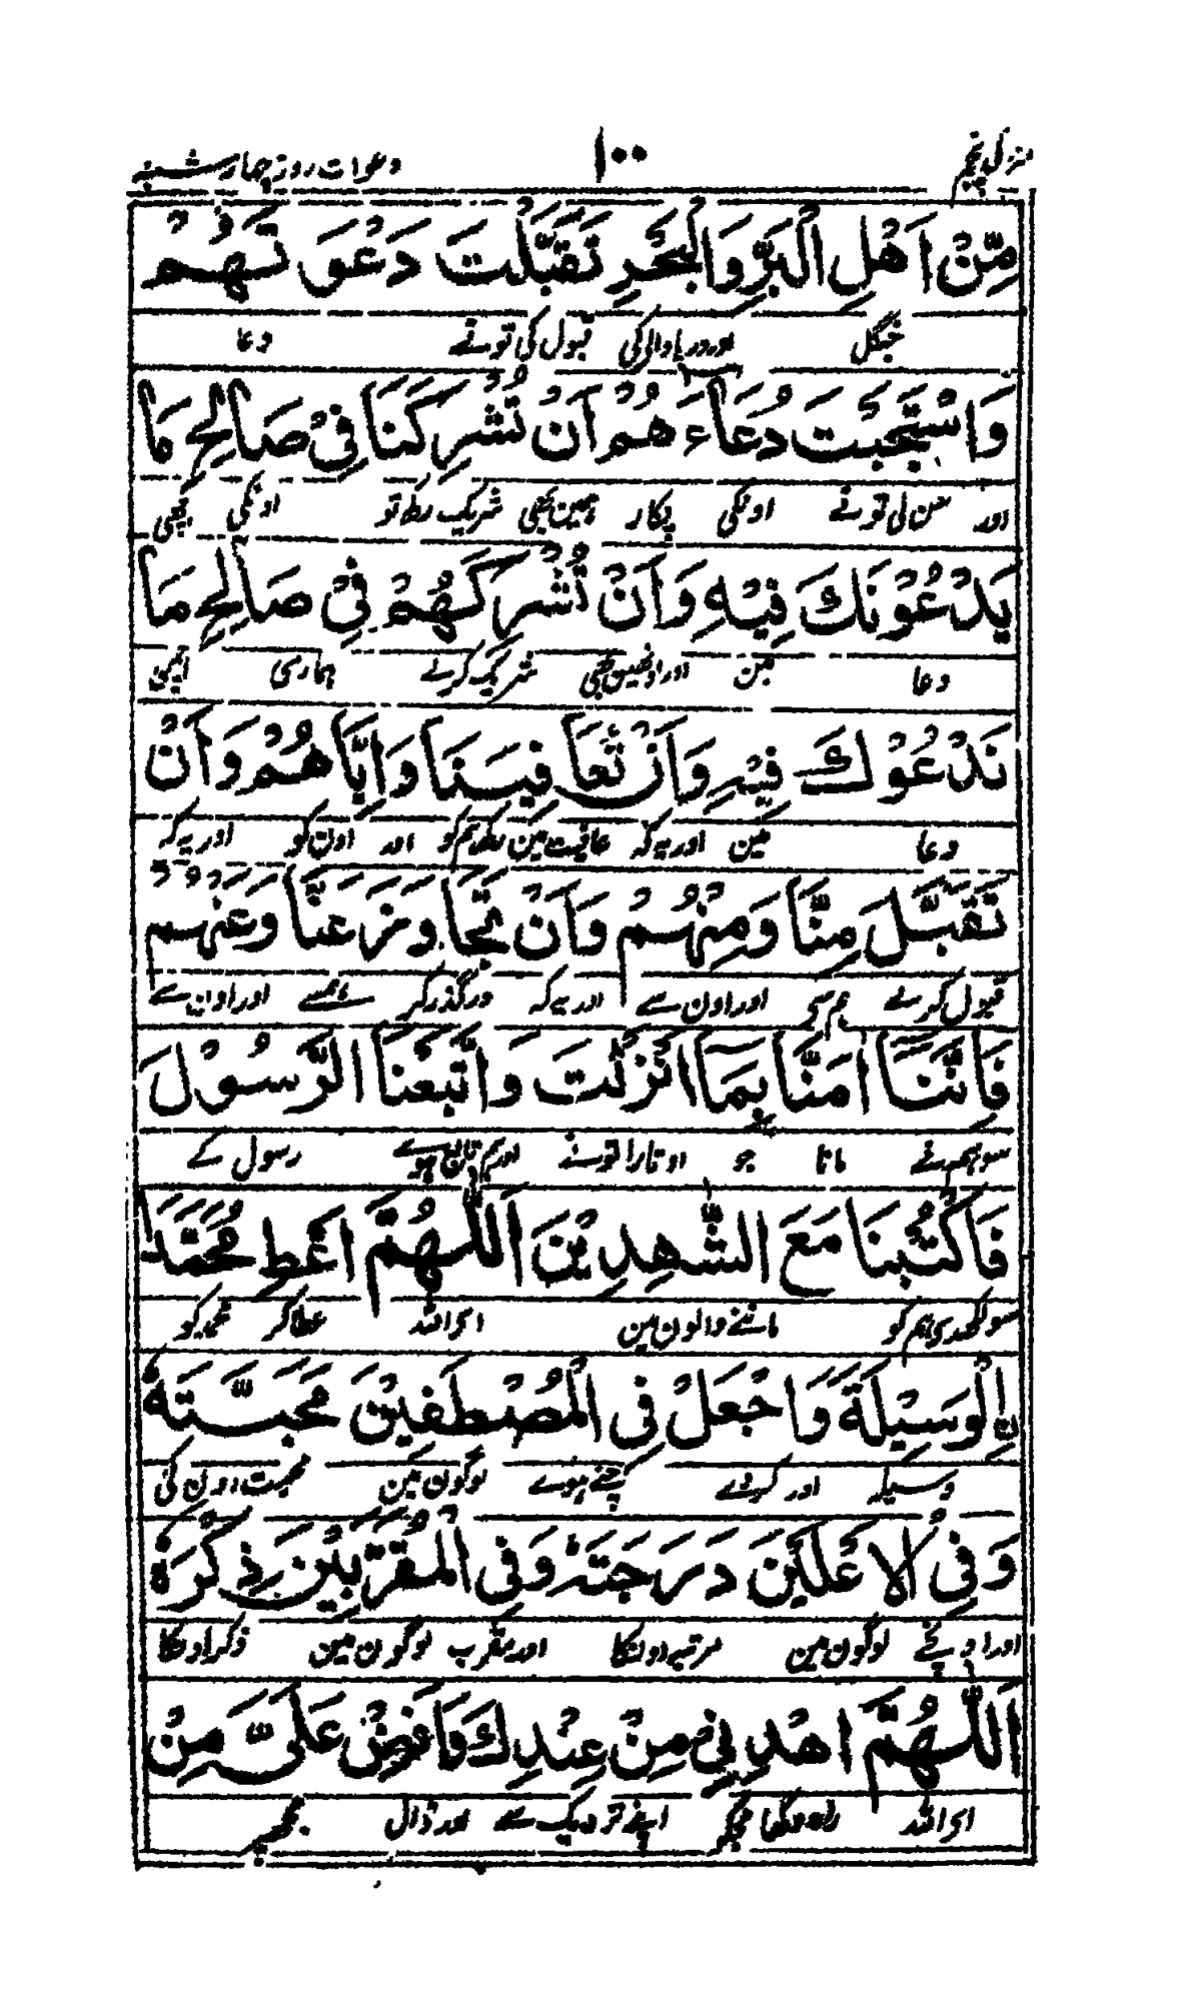 منزل پنجم ۱۰۰ دعوات روز چہار شنبہ
مِّنْ اَهْلِ الْبَرِّ وَالْبَحْرِ تَقَبَّلْتَ دَعْوَتَهُمْ
جنگل اور دریا والی کی قبول کی تونے دعا
وَاسْتَجَبْتَ دُعَاءَهُمْ اَنْ تُشْرِكَنَا فِيْ صَالِحِ مَا
اور سن لی تونے اونکی پکار ہمین بھی شریک رکھ تو اونکی اچھی
يَدْعُوْنَكَ فِيْهِ وَاَنْ تُشْرِكَهُمْ فِيْ صَالِحِ مَا
دعا مین اور اونھین بھی شریک کرلے ہماری اچھی
نَدْعُوْكَ فِيْهِ وَاَنْ تُعَافِيَنَا وَاِيَّاهُمْ وَاَنْ
دعا مین اور یہ کہ عافیت مین رکھ ہم کو اور اون کو اور یہ کہ
تَقَبَّلَ مِنَّا وَمِنْهُمْ وَاَنْ تَجَاوَزَ عَنَّا وَعَنْهُمْ
قبول کرلے ہم سی اور اون سے اور یہ کہ درگذر کر ہمسے اور اون سے
فَاِنَّنَا اٰمَنَّا بِمَا اَنْزَلْتَ وَاتَّبَعْنَا الرَّسُوْلَ
سو ہمنے مانا جو اوتارا تونے اور ہم تابع ہوے رسول کے
فَاكْتُبْنَا مَعَ الشّٰهِدِيْنَ اَللّٰهُمَّ اَعْطِ مُحَمَّدَا
سو لکھدی ہم کو ماننے والون مین ای اللہ عطا کر محمد کو
اِلْوَسِيْلَةَ وَاجْعَلْ فِي الْمُصْطَفَيْنَ مَحَبَّتَهٗ
وسیلہ اور کردے چنے ہوے لوگون مین محبت اون کی
وَفِي الْاَعْلَيْنَ دَرَجَتَهٗ وَفِي الْمُقَرَّبِيْنَ ذِكْرَهٗ
اور اونچے لوگون مین مرتبہ اونکا اور مقرب لوگون مین ذکر اونکا
اَللّٰهُمَّ اهْدِنِيْ مِنْ عِنْدِكَ وَاَفِضْ عَلَيَّ مِنْ
ای اللہ راہ دکھا مجکو اپنے نزدیک سے اور ڈال مجھپر